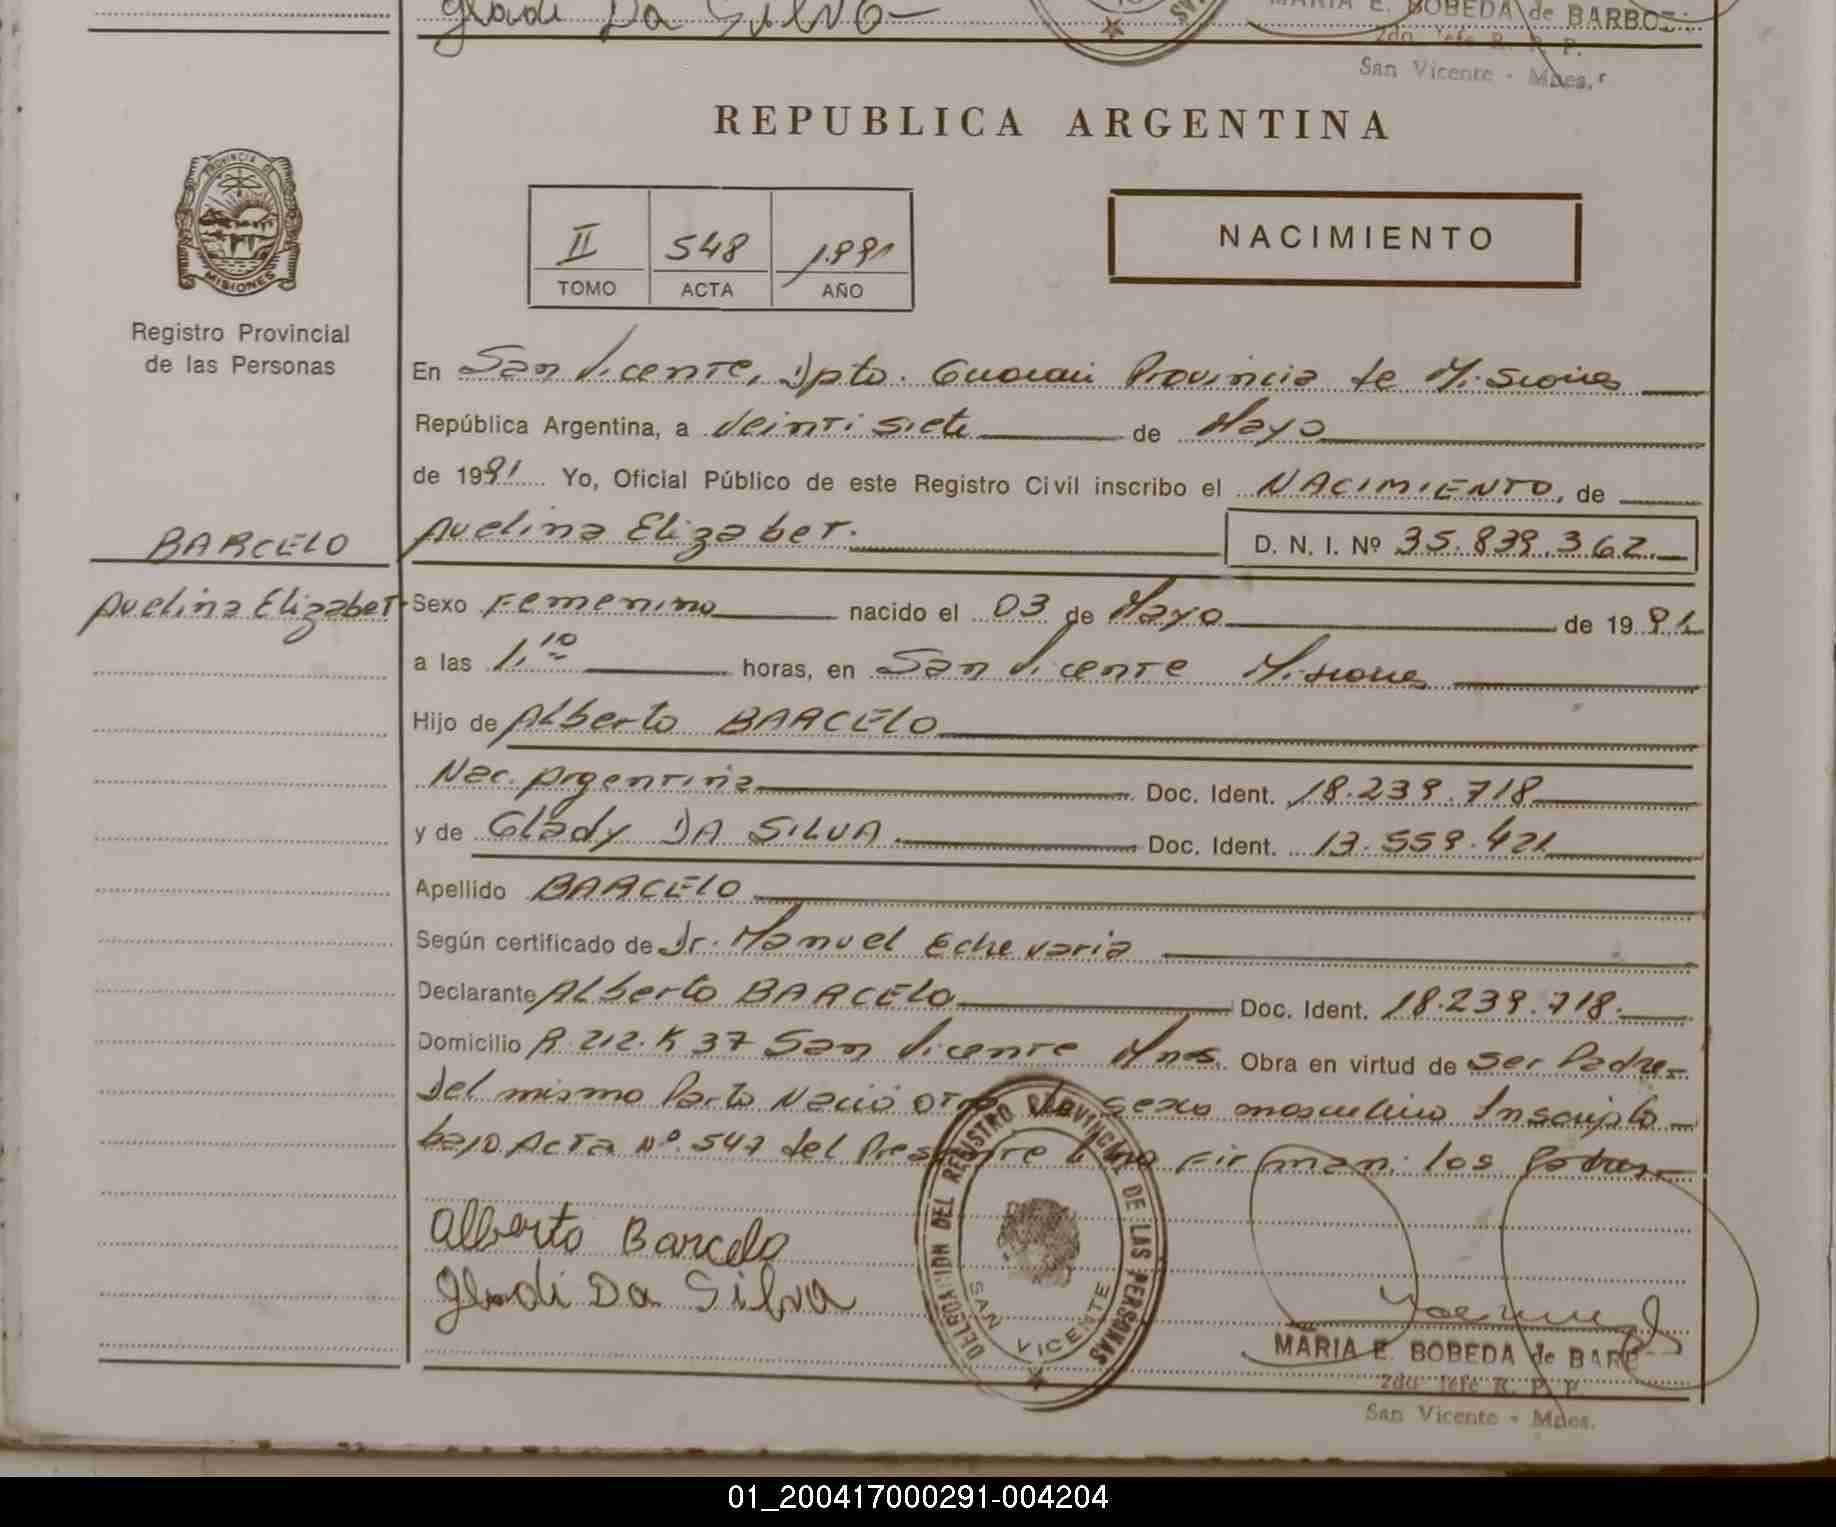 Gladi Da Silva
MARIA E. BOBEDA de BARBOZA
2do Jefe R. P. P.
San Vicente - Mnes.
REPUBLICA ARGENTINA
PROVINCIA DE
MISIONES
II 548 1.991
TOMO ACTA AÑO
NACIMIENTO
Registro Provincial
de las Personas
En San Vicente, Dpto. Guarani Provincia de Misiones
República Argentina, a veintisiete de Mayo
de 1991 Yo, Oficial Público de este Registro Civil inscribo el NACIMIENTO, de
BARCELO
Avelina Elizabet
Avelina Elizabet. D. N. I. Nº 35.839.362.
Sexo Femenino nacido el 03 de Mayo de 1991
a las 1,10 horas, en San Vicente Misiones
Hijo de Alberto BARCELO
Nac. Argentina Doc. Ident. 18.239.718
y de Glady DA SILVA. Doc. Ident. 13.559.421
Apellido BARCELO
Según certificado de Dr. Manuel Echevaria
Declarante Alberto BARCELO Doc. Ident. 18.239.718.
Domicilio R.212.K 37 San Vicente Mnes. Obra en virtud de ser Padre-
Del mismo Parto Nació otro de sexo masculino Inscripto
bajo Acta Nº. 547 del Presente firman: los Padres
Alberto Barcelo
Gladi Da Silva
DELEGACION DEL REGISTRO PROVINCIAL DE LAS PERSONAS
SAN VICENTE
MARIA E. BOBEDA de BARB
2do Jefe R. P. P.
San Vicente - Mnes.
01_200417000291-004204